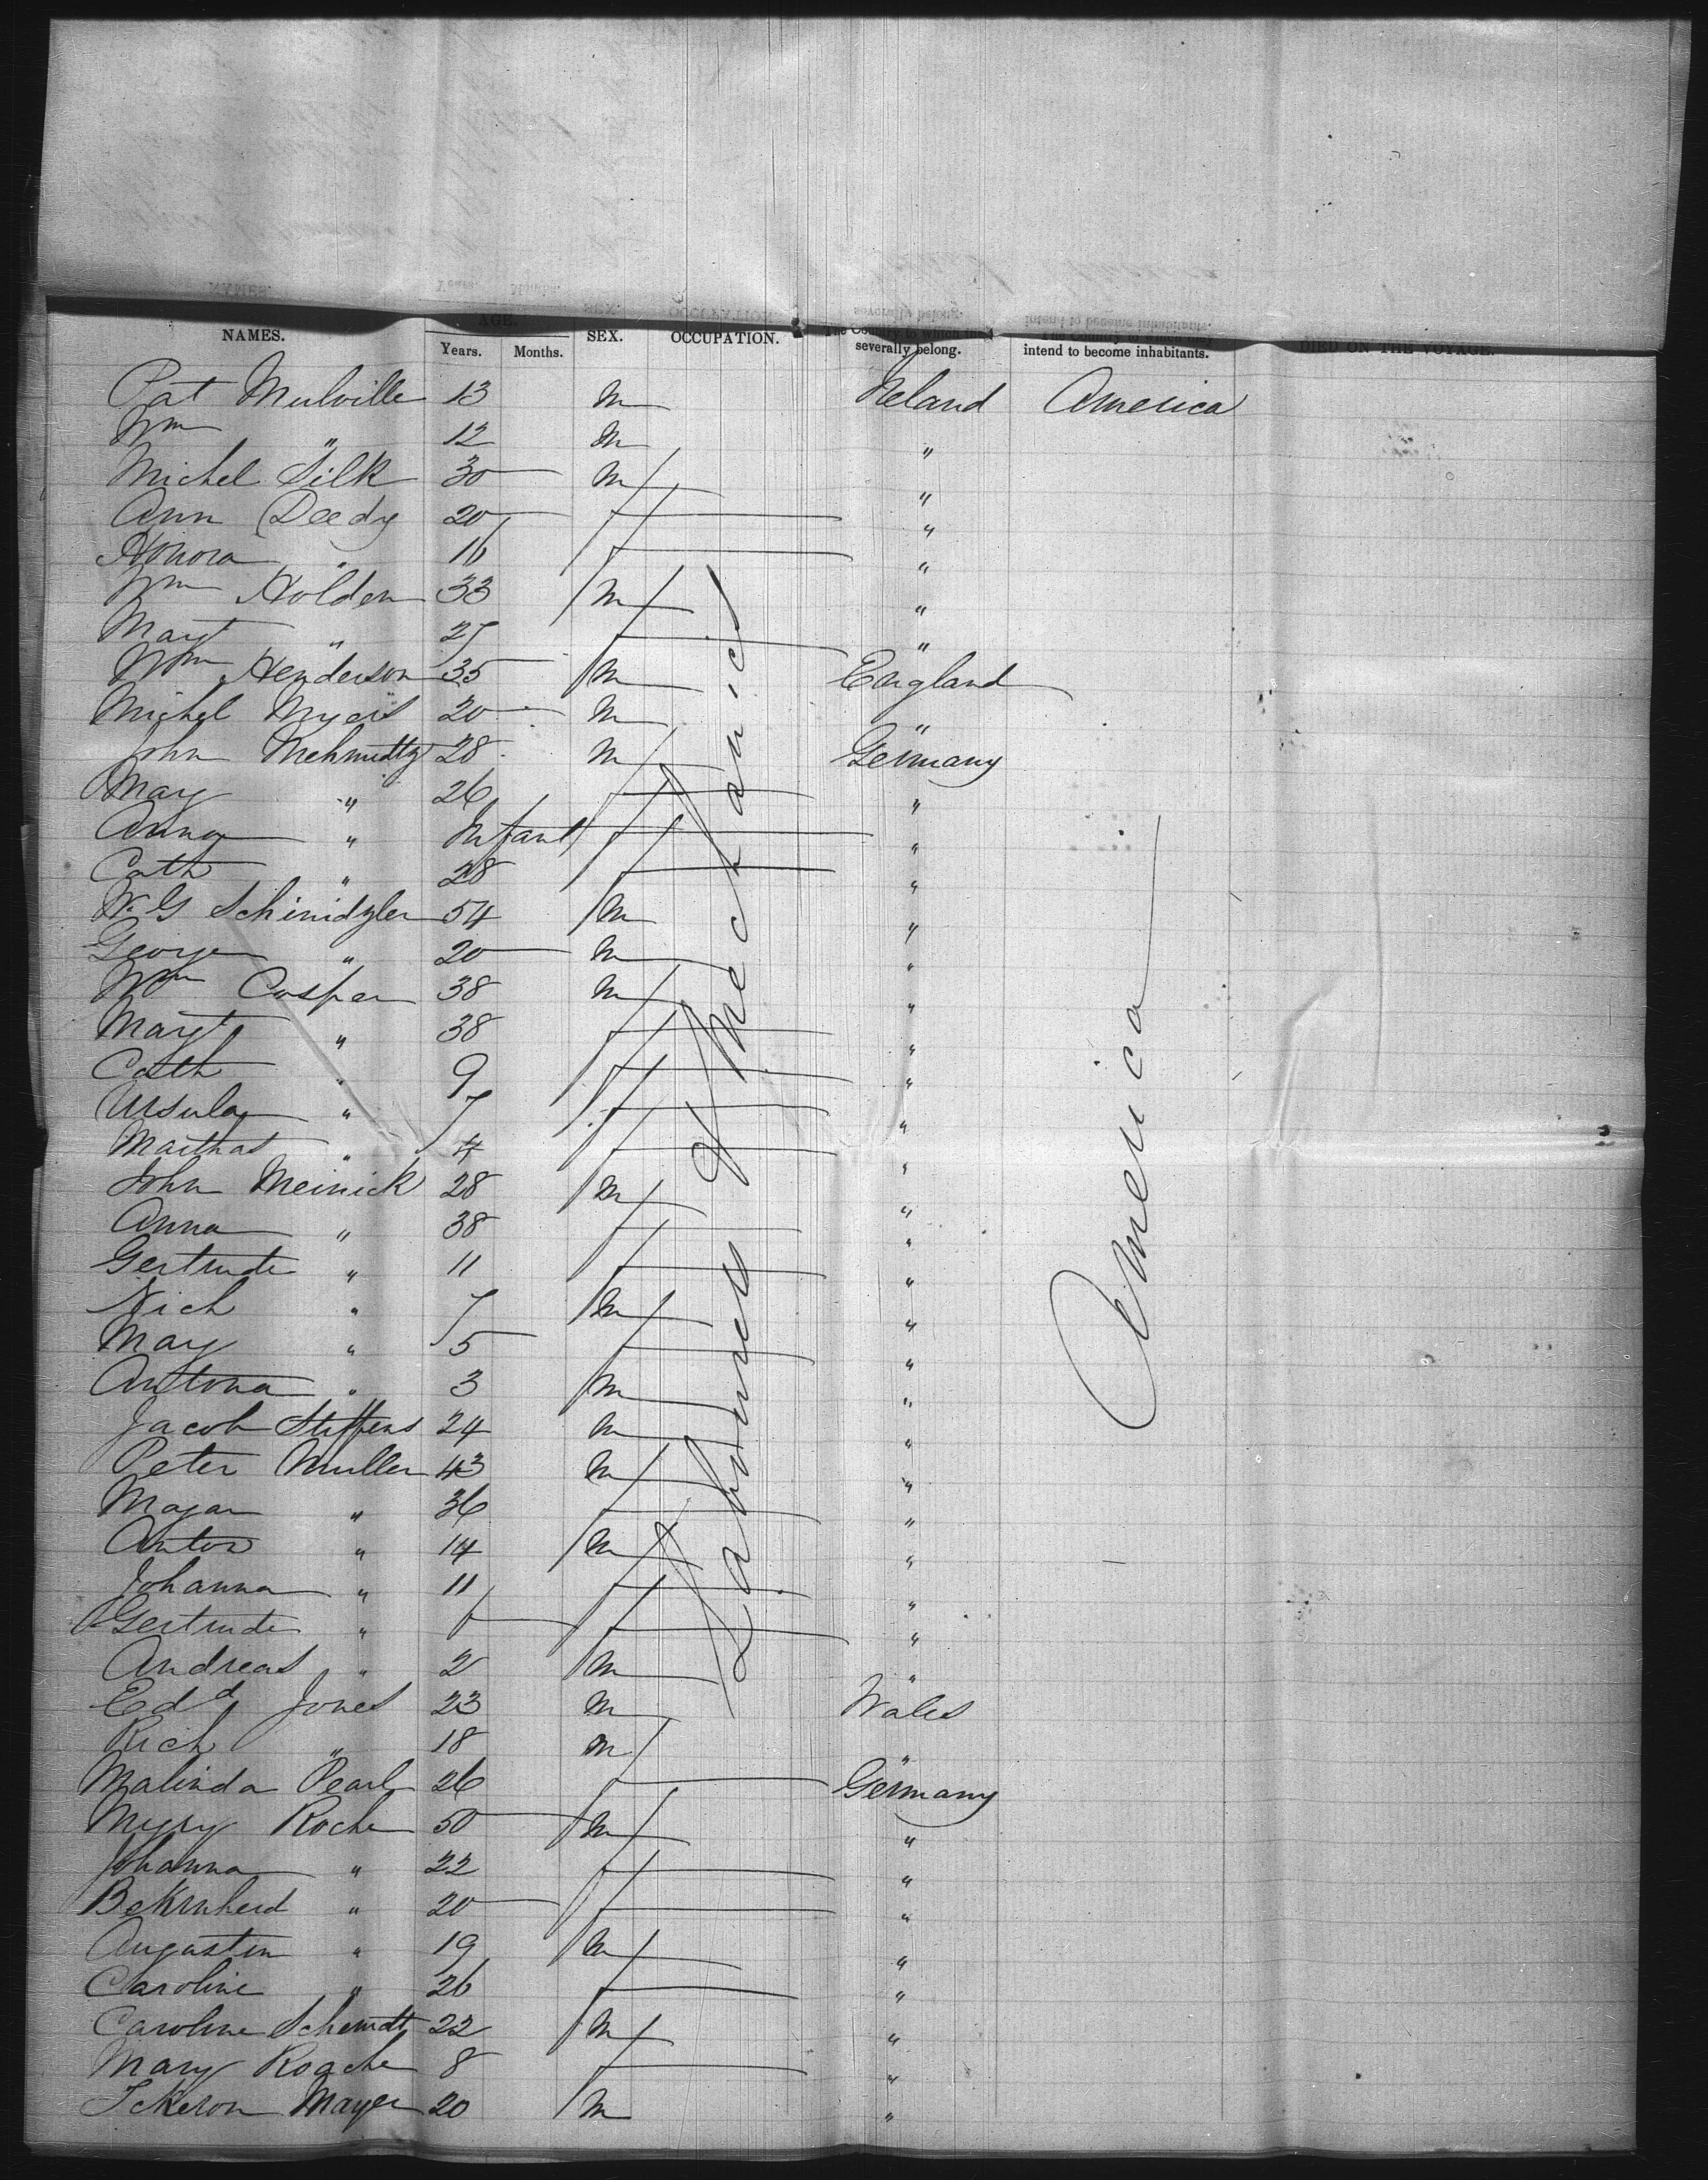 NAMES. AGE. SEX. OCCUPATION. The Country to which they severally belong. The Country to which they intend to become inhabitants. DIED ON THE VOYAGE.
Years. Months.
Pat Mulville 13 m Ireland America
Wm " 12 m "
Michel Silk 30 m "
Ann Deedy 20 f "
Honora " 16 f "
Wm Holden 33 m "
Margt " 27 f "
Wm Henderson 35 m England
Michel Myers 20 m "
John Mehmidtz 28 m Germany
May " 26 f "
Anna " Infant f "
Cath " 28 f "
W. G Schinidzler 54 m "
George " 20 m "
Wm Casper 38 m "
Margt " 38 f "
Cath " 9 f "
Ursula " 7 f "
Marthas " 4 f "
John Meinick 28 m "
Anna " 38 f "
Gertrude " 11 f "
Nich " 7 m "
May " 5 f "
Antona " 3 m "
Jacob Steffens 24 m "
Peter Muller 43 m "
Magan " 36 f "
Anton " 14 m "
Johanna " 11 f "
Gertrude " 6 f "
Andreas " 2 m "
Edd Jones 23 m Wales
Rich " 18 m "
Malinda Pearl 26 f Germany
Myry Roche 50 m "
Johanna " 22 f "
Bekrnherd " 20 f "
Augusten " 19 m "
Caroline " 26 f "
Caroline Schemdt 22 m "
Mary Roache 8 f "
Ickeron Mayer 20 m "
Labourers & Mechanics
America